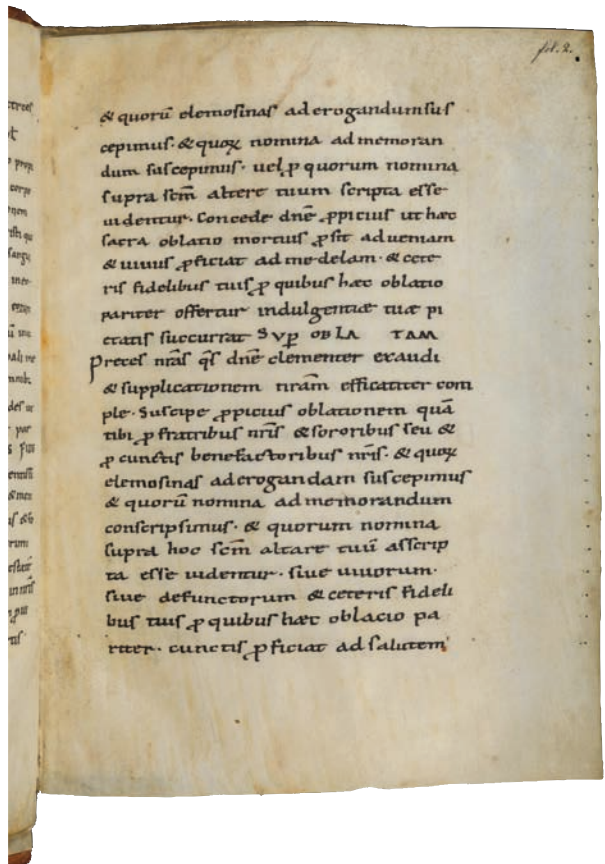 fol. 2.
& quorū elemosinas ad erogandum sus
cepimus· & quoꝝ nomina ad memoran
dum suscepimus· uel ꝓ quorum nomina
supra scm̄ altere tuum scripta esse
uidentur. Concede dn̄e ꝓpicius ut hæc
sacra oblatio mortuis ꝓsit ad ueniam
& uiuis ꝓficiat ad medelam· & cete
ris fidelibus tuis ꝓ quibus hæc oblatio
pariter offertur indulgentiæ tuæ pi
etatis succurrat SVꝑ OBLATAM
Preces nr̄as qs̄ dn̄e clementer exaudi
& supplicationem nr̄am efficatiter com
ple· Suscipe ꝓpicius oblationem quā
tibi ꝓ fratribus nr̄is & sororibus seu &
ꝓ cunctis benefactoribus nr̄is· & quoꝝ
elemosinas ad erogandam suscepimus
& quorū nomina ad memorandum
conscripsimus· & quorum nomina
supra hoc scm̄ altare tuū asscrip
ta esse uidentur· siue uiuorum·
siue defunctorum & ceteris fideli
bus tuis ꝓ quibus hæc oblacio pa
riter· cunctis ꝓficiat ad salutem